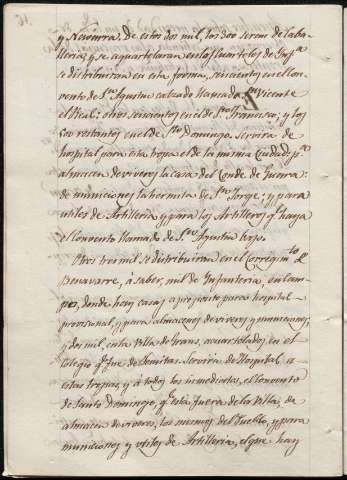 y Navarra, de estos dos mil, los dos seran de Caba-
lleria, y se aquartelaran en los Quarteles de Ynfª
se distribuiran en esta forma, seiscientos en el con-
vento de Sⁿ Agustin calzado llamado Sⁿ Vicente
el Real: otros seiscientos en el de Sⁿ Francisco; y los
restantes en el de Stº Domingo. servira de
hospital para esta tropa el de la misma Ciudad; pª
almacen de viveres la casa del Conde de Guara:
de municiones la hermita de Sⁿ Jorge; y para
utiles de Artilleria, y para los Artilleros qᵉ haya
el Convento llamado de Sⁿ Agustin bajo.
Otros tres mil se distribuiran en el Corregimtº de
Benavarre, à saber, mil de Ynfanteria, en Cam-
po, donde hay casas a proposito para hospital
provisional, y para almacenes de viveres y municiones,
y dos mil, en la Villa de Graus, aquartelados en el
Colegio qᵉ fue de Jesuitas. Servira de Hospital a
estas tropas, y à todos los inmediatos, el Convento
de Santo Domingo, qᵉ està fuera de la Villa, de
almacen de viveres, los mesones del Pueblo, y para
municiones y utiles de Artilleria, el que hay